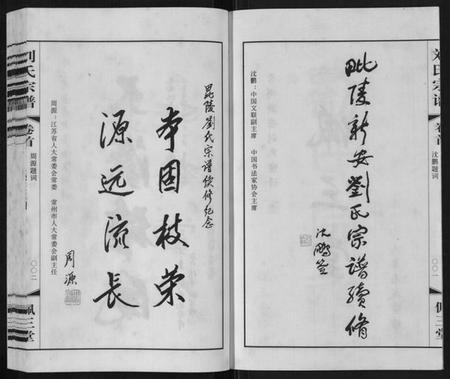 刘氏宗谱
卷首
沈鹏题词
〇〇一
佩三堂
毗陵新安劉氏宗譜續脩
沈鵬签
沈鹏：中国文联副主席 中国书法家协会主席
毘陵劉氏宗譜续修纪念
本固枝荣
源远流长
周源
周源：江苏省人大常委会常委 常州市人大常委会副主任
刘氏宗谱
卷首
周源题词
〇〇二
佩三堂